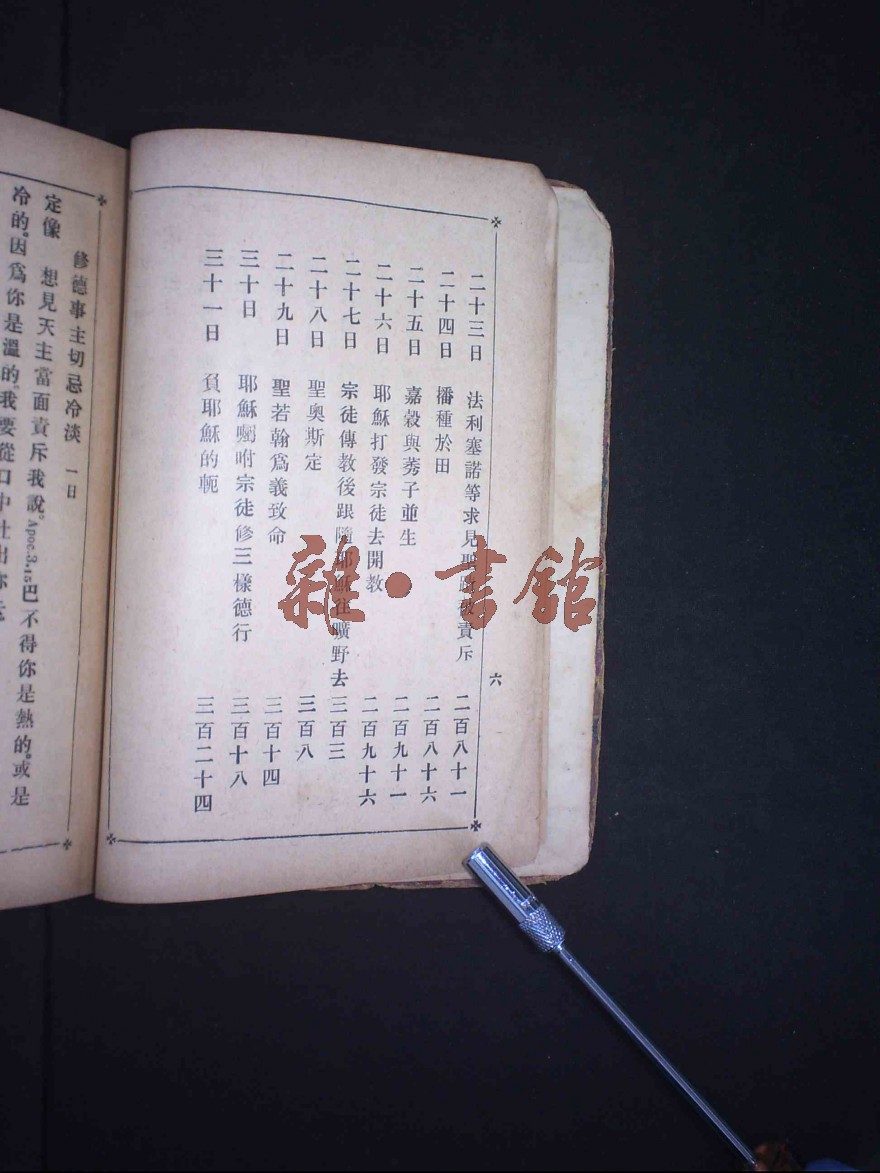 二十三日 法利塞諾等求見聖蹟被責斥 二百八十一
二十四日 播種於田 二百八十六
二十五日 嘉穀與莠子並生 二百九十一
二十六日 耶穌打發宗徒去開教 二百九十六
二十七日 宗徒傳教後跟隨耶穌往曠野去 三百三
二十八日 聖奧斯定 三百八
二十九日 聖若翰爲義致命 三百十四
三十日 耶穌囑咐宗徒修三樣德行 三百十八
三十一日 負耶穌的軛 三百二十四
六
修德事主切忌冷淡 一日
定像 想見天主當面責斥我說 Apoc.3.15 巴不得你是熱的。或是
冷的。因爲你是溫的。我要從口中吐出你
雜·書館